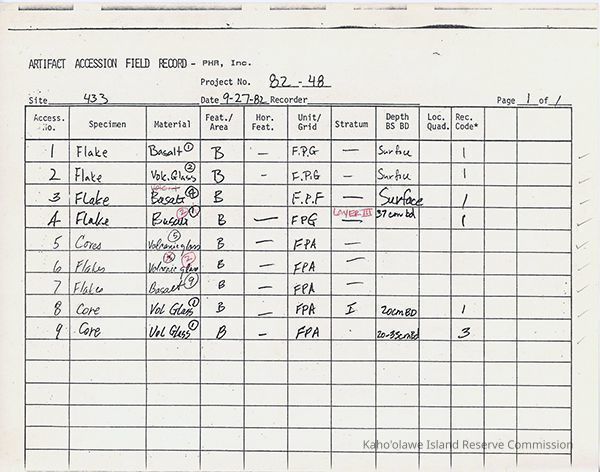 ARTIFACT ACCESSION FIELD RECORD - PHR, Inc.
Project No. 82-48
Site 433 Date 9-27-82 Recorder Page 1 of 1
Access. No. Specimen Material Feat./ Area Hor. Feat. Unit/ Grid Stratum Depth BS BD Loc. Quad. Rec. Code*
1 Flake Basalt ① B — F.P.G — Surface 1
2 Flake Volc. Glass ② B - F.P.G — Surface 1
3 Flake Basalt ④ B F.P.F — Surface 1
4 Flake Basalt 2 ① B — FPG LAYER III — 37cm bd 1
5 Cores Volcanic glass ⑤ B — FPA —
6 Flakes Volcanic glass ② B — FPA —
7 Flakes Basalt ⑨ B — FPA —
8 Core Vol Glass ① B — FPA I 20cm BD 1
9 Core Vol Glass ① B — FPA 20-35cmbd 3
Kaho'olawe Island Reserve Commission